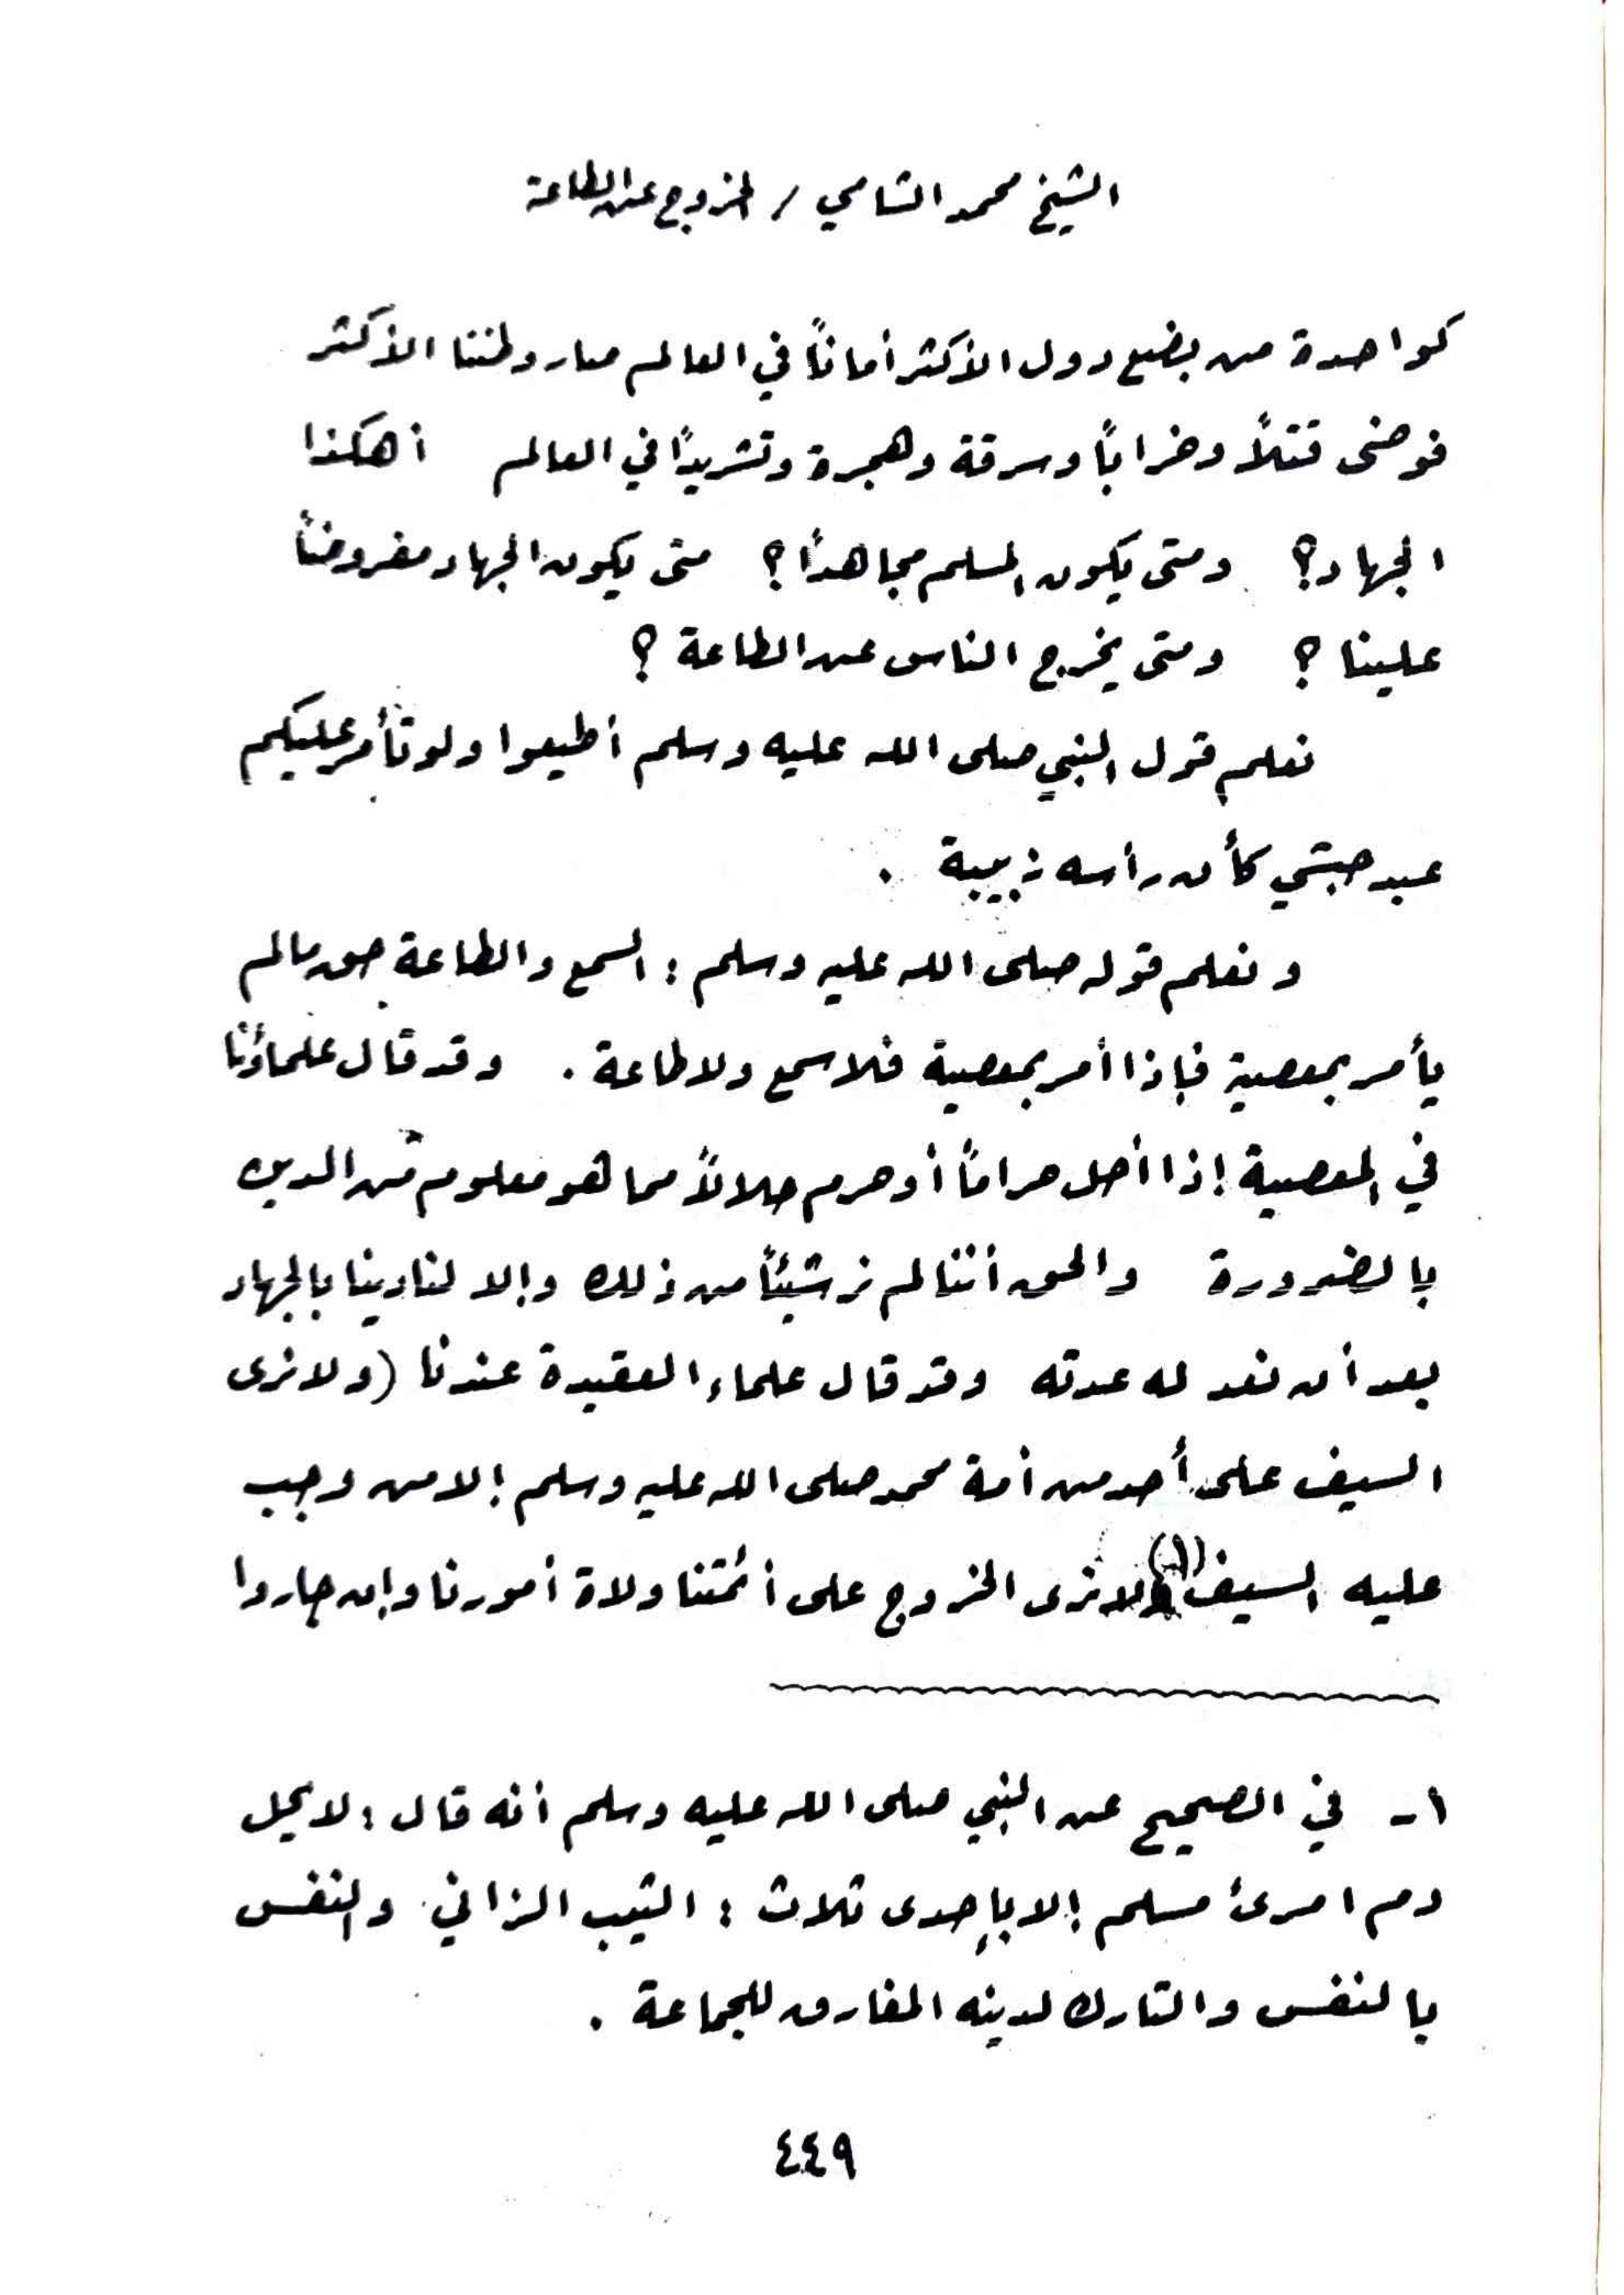 الشيخ محمد الشامي / الخروج عن الطاعة
كواحدة من بضع دول الأكثر أماناً في العالم صار وطننا الأكثر
فوضى قتلاً وخراباً وسرقة وهجرة وتشريداً في العالم أهكذا
الجهاد؟ ومتى يكون المسلم مجاهداً؟ متى يكون الجهاد مفروضاً
علينا؟ ومتى يخرج الناس عن الطاعة؟
نعلم قول النبي صلى الله عليه وسلم أطيعوا ولو تأمر عليكم
عبد حبشي كأن رأسه زبيبة .
ونعلم قوله صلى الله عليه وسلم : السمع والطاعة حق مالم
يأمر بمعصية فإذا أمر بمعصية فلا سمع ولا طاعة . وقد قال علماؤنا
في المعصية إذا أحل حراماً أو حرم حلالاً مما هو معلوم من الدين
بالضرورة والحق أننا لم نر شيئاً من ذلك وإلا لنادينا بالجهاد
بعد أن نعد له عدته وقد قال علماء العقيدة عندنا (ولا نرى
السيف على أحد من أمة محمد صلى الله عليه وسلم إلا من وجب
عليه السيف(١) ولا نرى الخروج على أئمتنا ولاة أمورنا وإن جاروا
١- في الصحيح عن النبي صلى الله عليه وسلم أنه قال : لا يحل
دم امرئ مسلم إلا بإحدى ثلاث : الثيب الزاني والنفس
بالنفس والتارك لدينه المفارق للجماعة .
٤٤٩